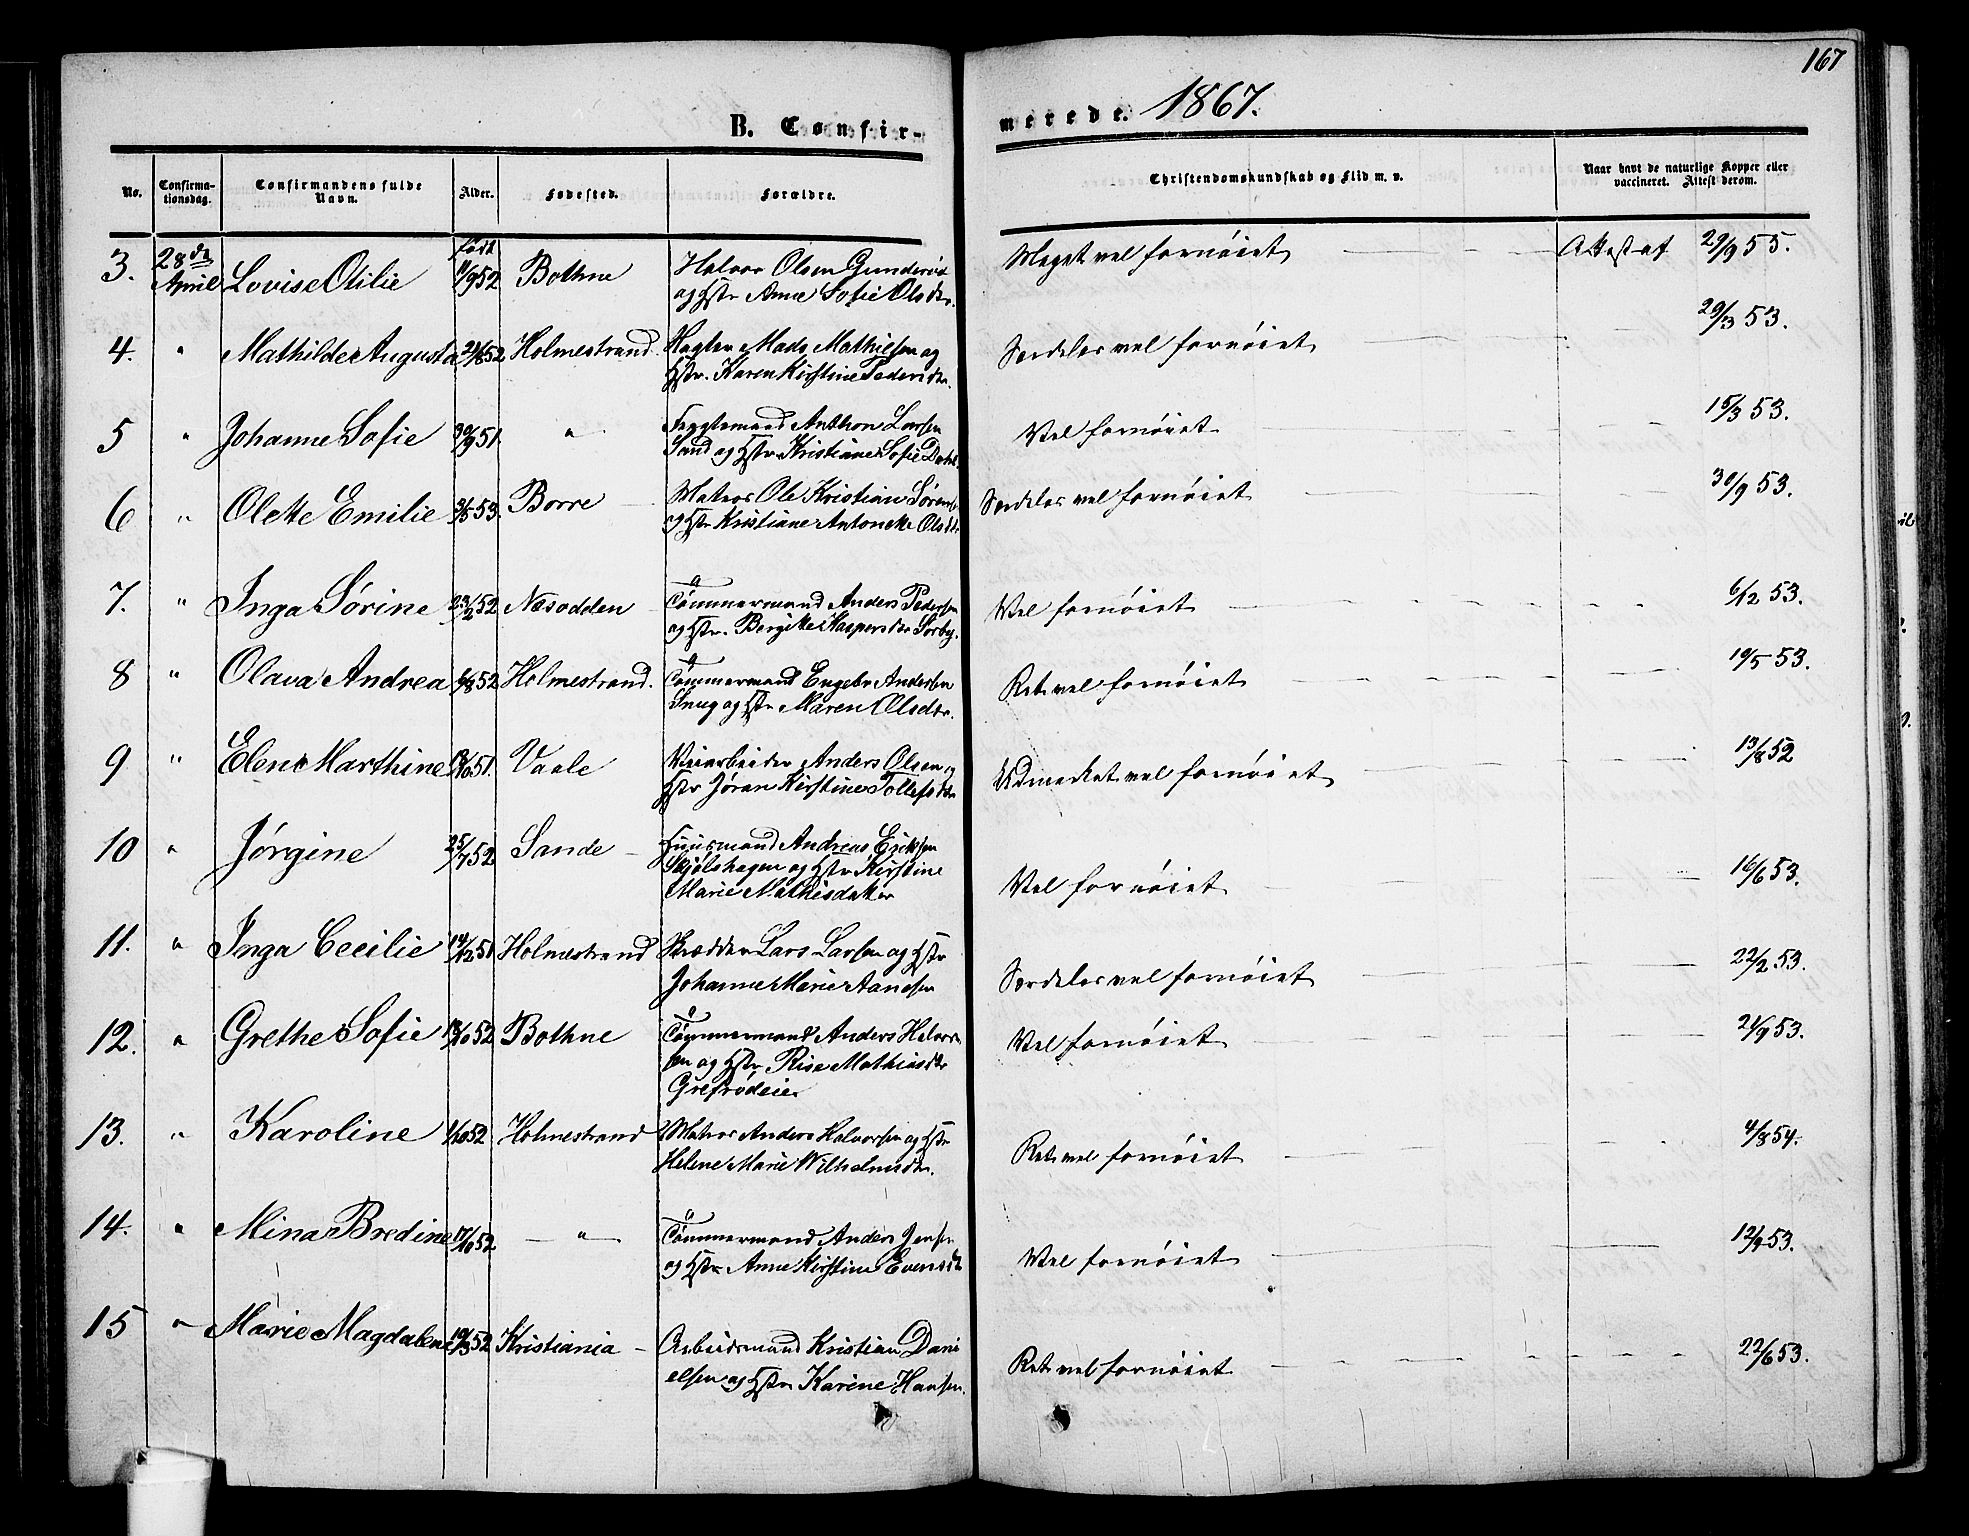 167
B. Confir-
merede. 1867.
No.
Confirma-
tionsdag.
Confirmandens fulde
Navn.
Alder.
Fødested.
Forældre.
Christendomskundskab og Flid m. v.
Naar havt de naturlige Kopper eller
vaccineret. Attest derom.
3. 28de April Lovise Otilie født 11/9 52 Bothne Halvor Olsen Gunderød
og Hstr Anne Sofie Olsdtr.
Meget vel fornøiet Attest af 29/9 55.
4. " Mathilde Augusta 21/8 52 Holmestrand. Mads Mathisen og
Hstr. Karen Kirstine Pedersdtr.
Særdeles vel fornøiet 29/3 53.
5 " Johanne Sofie 30/9 51. " Anthon Larsen
Sand og Hstr Kristiane Sofie Dahl.
Vel fornøiet 15/3 53.
6 " Olette Emilie 3/5 53. Borre Matros Ole Kristian Sørens.
og Hstr Kristiane Antonette Olsdtr
Særdeles vel fornøiet 30/9 53.
7. " Inga Sørine 23/2 52 Næsodden Tømmermand Anders Pedersen
og Hstr. Bergitte Kaspersdtr Sørby.
Vel fornøiet 6/12 53.
8 " Olava Andrea 6/8 52 Holmestrand. Tømmermand Engebr Andersen
Snug og Hstr Maren Olsdtr.
Ret vel fornøiet 19/5 53.
9 " Elene Marthine 19/10 51. Vaale Veiarbeider Anders Olsen og
Hstr Jøran Kirstine Tollefsdtr
Udmerket vel fornøiet 13/8 52
10 " Jørgine 25/7 52 Sande Huusmand Andreas Eriksen
Skjølshagen og Hstr Kirstine
Marie Mathisdatter
Vel fornøiet 16/6 53.
11. " Inga Cecilie 14/12 51 Holmestrand Skrædder Lars Larsen og Hstr
Johanne Marie Aanesen
Særdeles vel fornøiet 22/2 53.
12. " Grethe Sofie 13/10 52 Bothne Tømmermand Anders Halvor-
sen og Hstr Risa Mathiasdtr
Grefrødeie
Vel fornøiet 21/9 53.
13. " Karoline 1/10 52 Holmestrand Matros Anders Halvorsen og Hstr
Helene Marie Wilhelmsdtr.
Ret vel fornøiet 4/8 54.
14. " Mina Bredine 17/10 52 " Tømmermand Anders Jensen
og Hstr Anne Kirstine Evensdtr
Vel fornøiet 12/9 53.
15 " Marie Magdalene 19/3 52 Kristiania Arbeidsmand Kristian Dani
elsen og Hstr Karine Hansen.
Ret vel fornøiet 22/6 53.